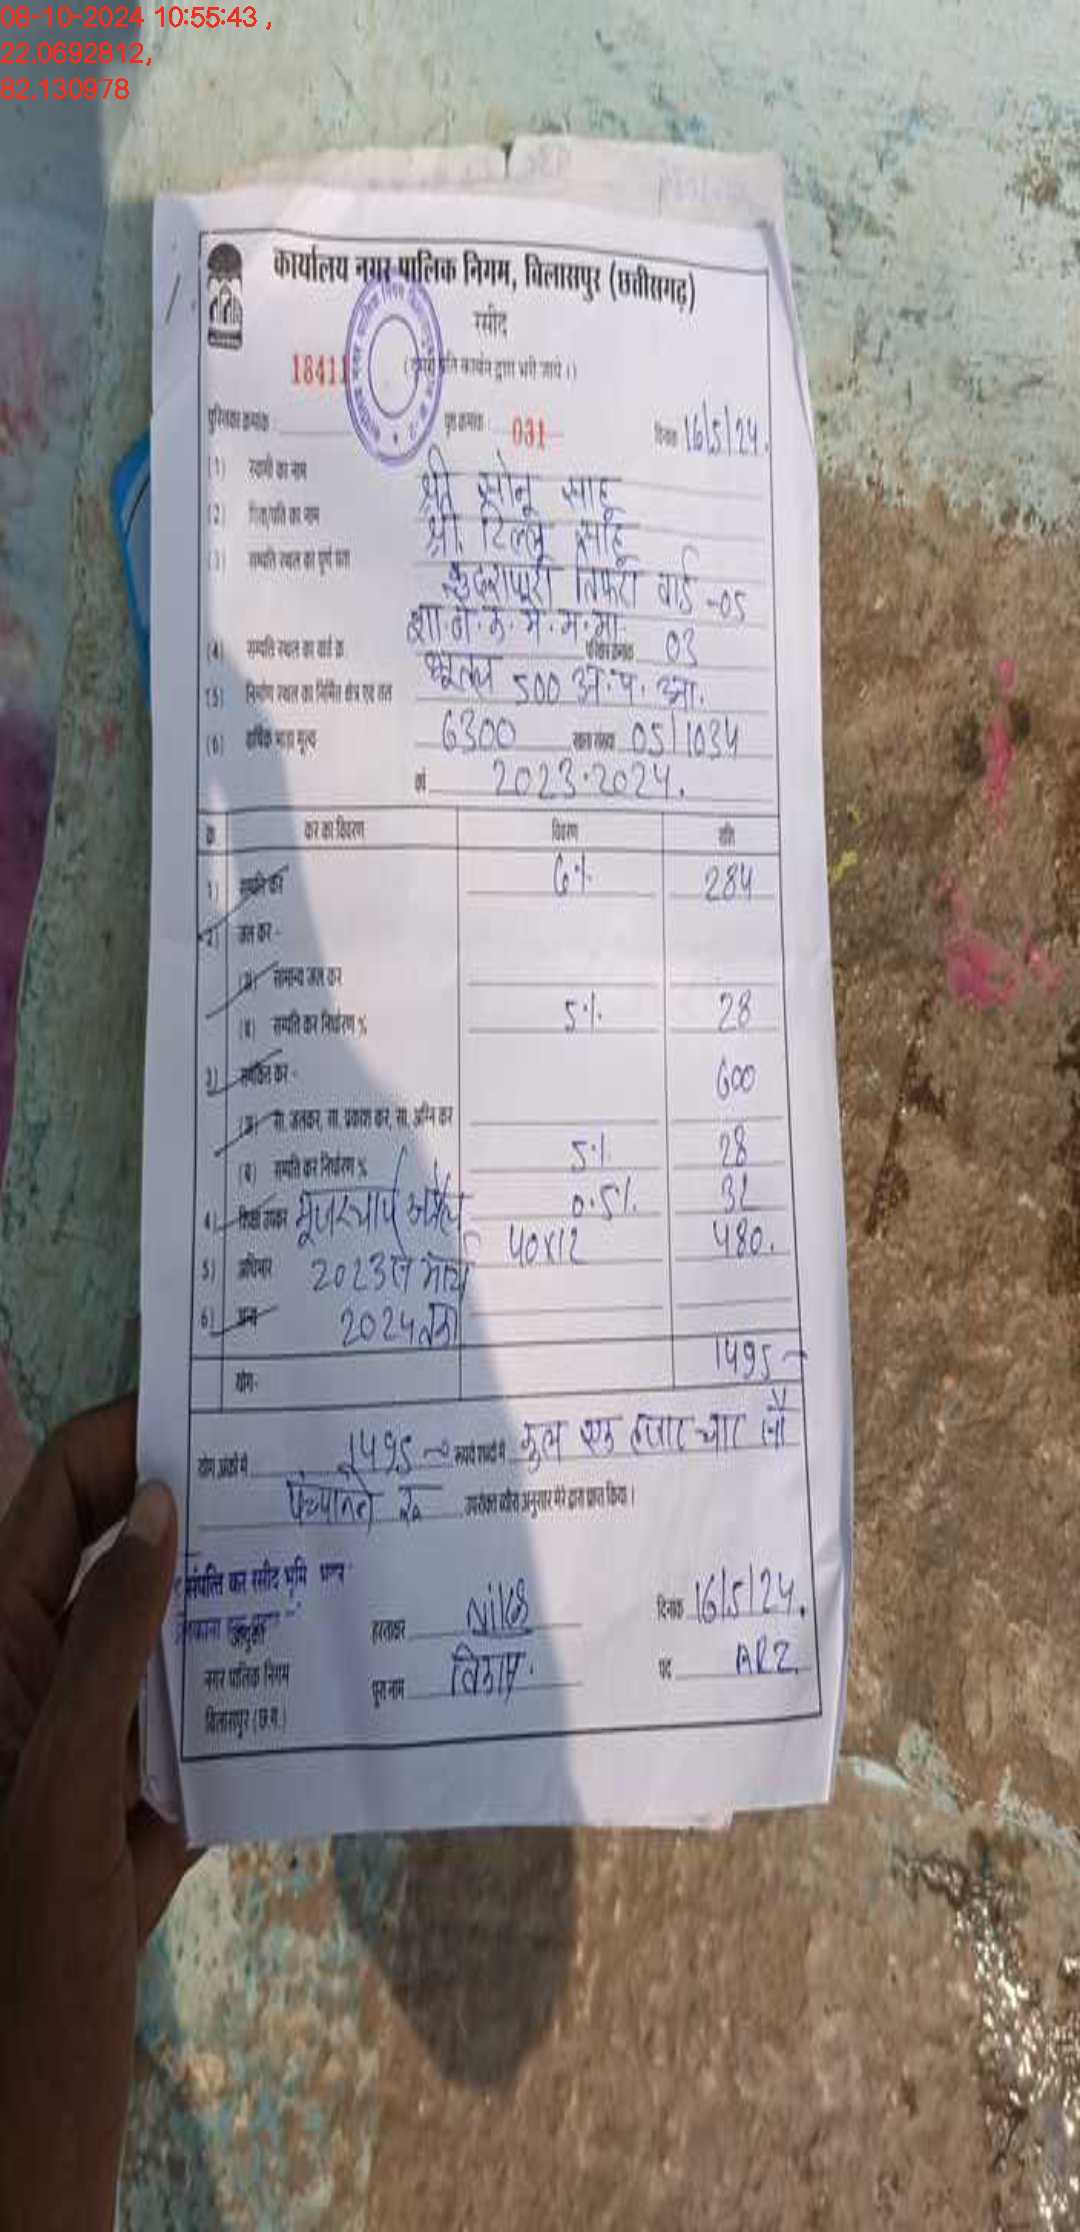 08-10-2024 10:55:43 ,
22.0692812,
82.130978
कार्यालय नगर पालिक निगम, बिलासपुर (छत्तीसगढ़)
रसीद
18411 ( प्रति कार्बन द्वारा भरी जाये ।)
पुस्तिका क्रमांक : पृष्ठ क्रमांक : 031 दिनांक 16/5/24.
(1) स्वामी का नाम श्री सोनू साहू
(2) पिता/पति का नाम श्री. टिल्लू साहू
(3) सम्पत्ति स्थल का पूर्ण पता तिफरा वार्ड -05
(4) सम्पत्ति स्थल का वार्ड क्र. परिक्षेत्र क्रमांक 03
(5) निर्माण स्थल का निर्मित क्षेत्र एवं तल भूतल 500 अ.प. आ.
(6) वार्षिक भाड़ा मूल्य 6300 खाता संख्या 05/1034
वर्ष 2023-2024.
क्र. कर का विवरण विवरण राशि
1) सम्पत्ति कर 6% 284
2) जल कर -
(अ) सामान्य जल कर
(ब) सम्पत्ति कर निर्धारण % 5% 28
3) समेकित कर - 600
(अ) सा. जलकर, सा. प्रकाश कर, सा. अग्नि कर
(ब) सम्पत्ति कर निर्धारण % 5% 28
4) शिक्षा उपकर यूजरचार्ज अप्रैल 0.5% 32
5) अधिभार 2023 से मार्च 40x12 480.
6) अन्य 2024 तक
योग- 1495
योग अंकों में 1495 रूपये शब्दों में कुल एक हजार चार सौ
पंच्यानवे रू उपरोक्त ब्यौरा अनुसार मेरे द्वारा प्राप्त किया ।
संपत्ति कर रसीद भूमि
आयुक्त हस्ताक्षर दिनांक 16/5/24.
नगर पालिक निगम पूरा नाम विकास. पद ARI
बिलासपुर (छ.ग.)